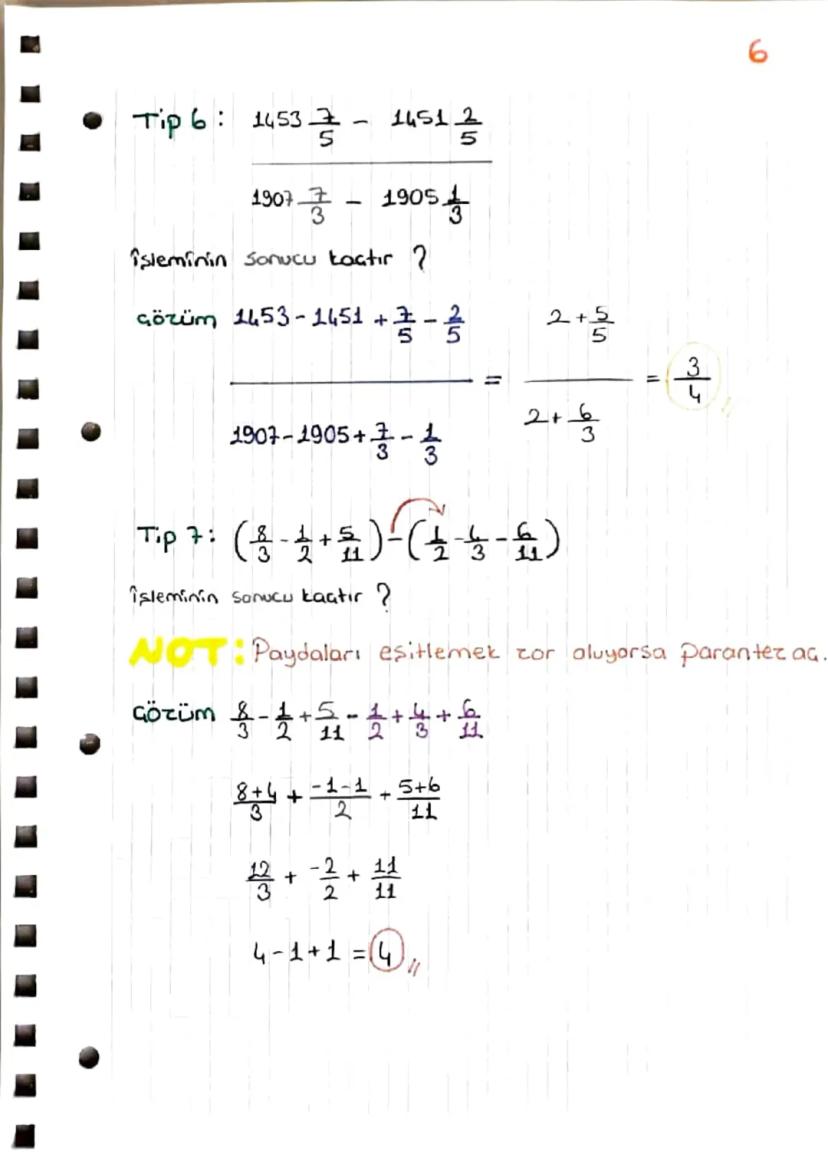 6
Tip 6: 1453 7/5 - 1451 2/5
1907 7/3 - 1905 1/3
işleminin sonucu kaçtır ?
Çözüm 1453 - 1451 + 7/5 - 2/5 / 1907 - 1905 + 7/3 - 1/3 = 2 + 5/5 / 2 + 6/3 = 3/4
Tip 7: (8/3 - 1/2 + 5/11) - (1/2 - 4/3 - 6/11)
işleminin sonucu kaçtır ?
NOT: Paydaları eşitlemek zor oluyorsa parantez aç.
Çözüm 8/3 - 1/2 + 5/11 - 1/2 + 4/3 + 6/11
8+4/3 + -1-1/2 + 5+6/11
12/3 + -2/2 + 11/11
4 - 1 + 1 = 4